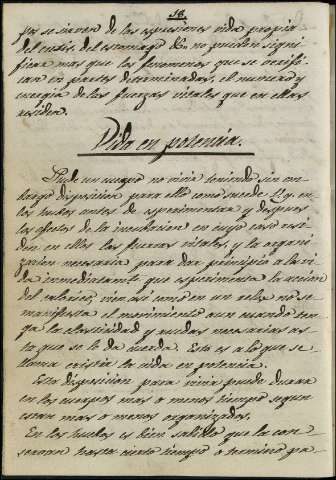 18.
que se sirven de las espresiones vida propia
del cutis, del estomago &c no pueden signi-
ficar mas que los fenomenos que se verifi-
can en partes determinadas, el numero y
energia de las fuerzas vitales que en ellas
residen.
Vida en potencia.
Puede un cuerpo no vivir teniendo sin em-
bargo disposicion para ello como sucede v. g. en
los huebos antes de esperimentar y despues
los efectos de la incubacion en cuyo caso resi-
den en ellos las fuerzas vitales, y la organi-
zacion necesaria para dar principio a la vi-
da inmediatamente que esperimenta la accion
del calorico, mas asi como en un relox no se
manifiesta el movimiento aun cuando ten-
ga la elasticidad y ruedas necesarias as-
ta que se le da cuerda. Esta es a lo que se
llama existir la vida en potencia.
Esta disposicion para vivir puede durar
en los cuerpos mas o menos tiempo segun
estan mas o menos organizados.
En los huebos es bien sabido que la con-
servan hasta cierto tiempo o termino pa-